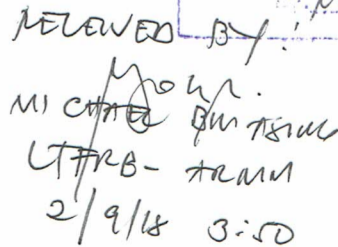 RECEIVED BY:
MICHAEL
LTFRB - ARMM
2/9/18 3:50